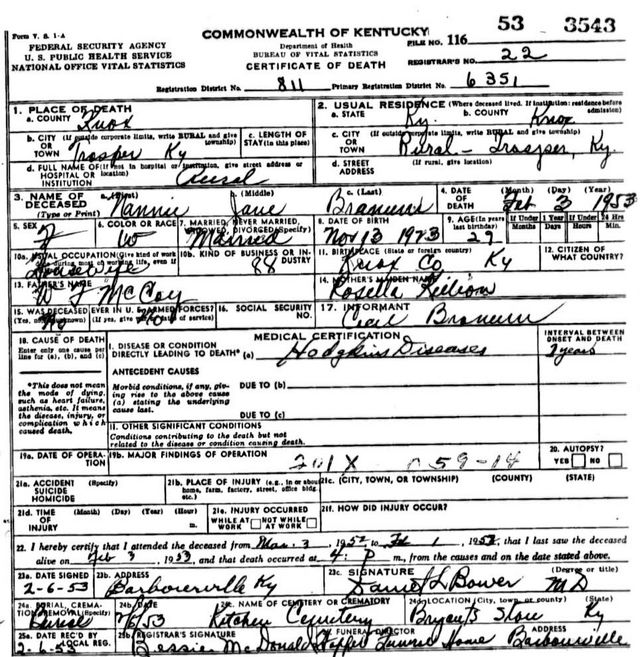 Form V. S. 1-A
COMMONWEALTH OF KENTUCKY 53 3543
FEDERAL SECURITY AGENCY Department of Health FILE NO. 116
U. S. PUBLIC HEALTH SERVICE BUREAU OF VITAL STATISTICS
NATIONAL OFFICE VITAL STATISTICS CERTIFICATE OF DEATH REGISTRAR'S NO. 22
Registration District No. 811 Primary Registration District No. 6351
1. PLACE OF DEATH 2. USUAL RESIDENCE (Where deceased lived. If institution: residence before admission)
a. COUNTY Knox a. STATE Ky. b. COUNTY Knox
b. CITY (If outside corporate limits, write RURAL and give township) OR TOWN Trosper Ky c. LENGTH OF STAY (in this place) c. CITY (If outside corporate limits, write RURAL and give township) OR TOWN Rural - Trosper, Ky.
d. FULL NAME OF (If not in hospital or institution, give street address or location) HOSPITAL OR INSTITUTION Rural d. STREET ADDRESS (If rural, give location)
3. NAME OF DECEASED (Type or Print) a. (First) Nannie b. (Middle) Jane c. (Last) Branum 4. DATE OF DEATH (Month) (Day) (Year) Feb 3 1953
5. SEX F 6. COLOR OR RACE W 7. MARRIED, NEVER MARRIED, WIDOWED, DIVORCED (Specify) Married 8. DATE OF BIRTH Nov 13 1923 9. AGE (In years last birthday) 29 If Under 1 Year Months Days If Under 24 Hrs Hours Min.
10a. USUAL OCCUPATION (Give kind of work done during most of working life, even if retired) Housewife 10b. KIND OF BUSINESS OR INDUSTRY 88 11. BIRTHPLACE (State or foreign country) Knox Co Ky 12. CITIZEN OF WHAT COUNTRY?
13. FATHER'S NAME W J McCoy 14. MOTHER'S MAIDEN NAME Rosella
15. WAS DECEASED EVER IN U. S. ARMED FORCES? (Yes, no, or unknown) (If yes, give war or dates of service) No 16. SOCIAL SECURITY NO. 17. INFORMANT Cecil Branum
18. CAUSE OF DEATH MEDICAL CERTIFICATION INTERVAL BETWEEN ONSET AND DEATH
Enter only one cause per line for (a), (b), and (c) I. DISEASE OR CONDITION DIRECTLY LEADING TO DEATH* (a) Hodgkins Diseases years
ANTECEDENT CAUSES
*This does not mean the mode of dying, such as heart failure, asthenia, etc. It means the disease, injury, or complication which caused death. Morbid conditions, if any, giving rise to the above cause (a) stating the underlying cause last. DUE TO (b)
DUE TO (c)
II. OTHER SIGNIFICANT CONDITIONS
Conditions contributing to the death but not related to the disease or condition causing death.
19a. DATE OF OPERATION 19b. MAJOR FINDINGS OF OPERATION 201X 059-14 20. AUTOPSY? YES NO
21a. ACCIDENT SUICIDE HOMICIDE (Specify) 21b. PLACE OF INJURY (e.g., in or about home, farm, factory, street, office bldg., etc.) 21c. (CITY, TOWN, OR TOWNSHIP) (COUNTY) (STATE)
21d. TIME OF INJURY (Month) (Day) (Year) (Hour) m. 21e. INJURY OCCURRED WHILE AT WORK NOT WHILE AT WORK 21f. HOW DID INJURY OCCUR?
22. I hereby certify that I attended the deceased from Mar. 3, 1952 to Feb 1, 1953, that I last saw the deceased
alive on Feb 3, 1953, and that death occurred at 4: P m., from the causes and on the date stated above.
23a. DATE SIGNED 2-6-53 23b. ADDRESS Barbourville Ky 23c. SIGNATURE Daniel L Bower (Degree or title) M D
24a. BURIAL, CREMATION, REMOVAL (Specify) Burial 24b. DATE 2/6/53 24c. NAME OF CEMETERY OR CREMATORY Kitchen Cemetery 24d. LOCATION (City, town, or county) (State) Bryants Store Ky
25a. DATE REC'D BY LOCAL REG. 2-6-53 25b. REGISTRAR'S SIGNATURE Bessie McDonald FUNERAL DIRECTOR Funeral Home ADDRESS Barbourville